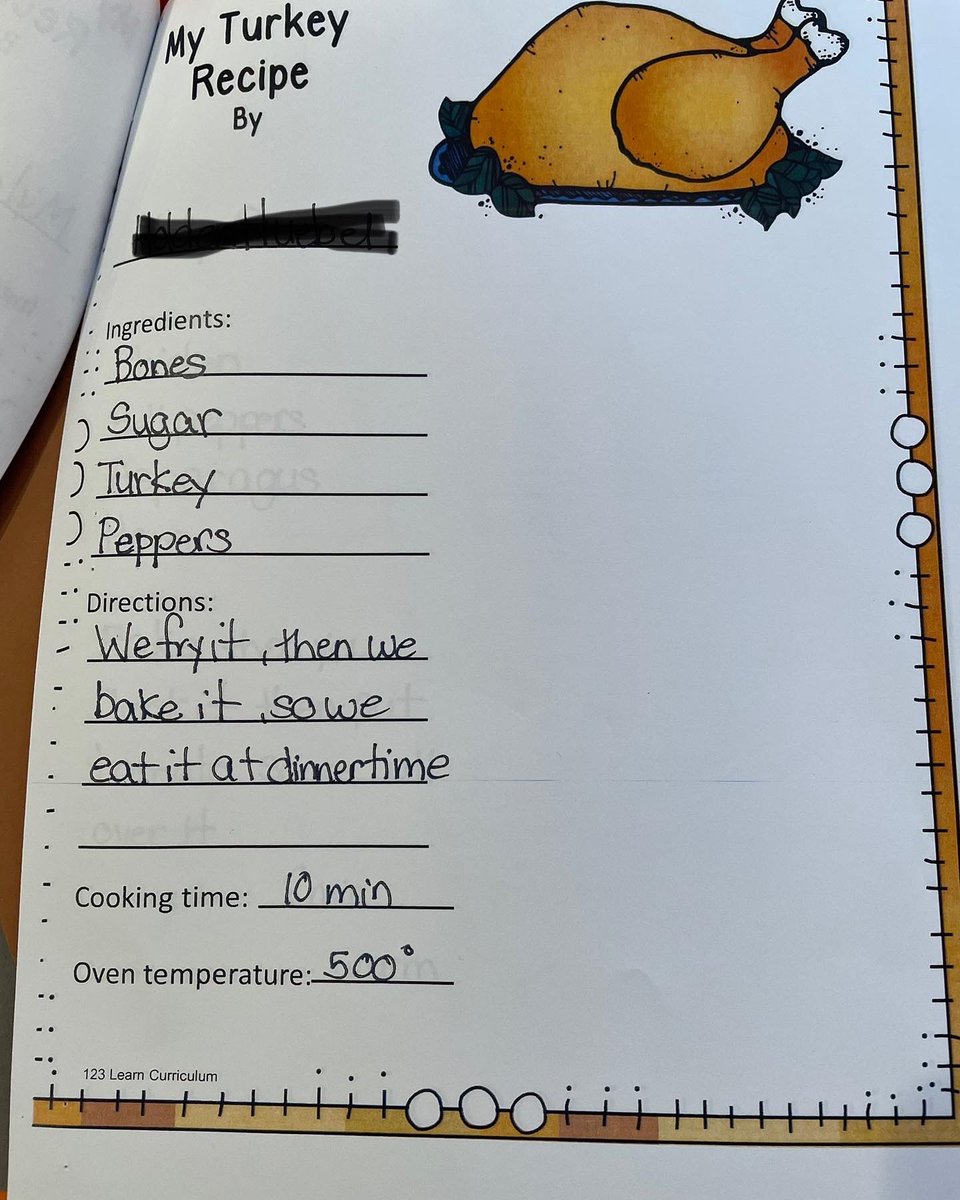 My Turkey
Recipe
By
Ingredients:
Bones
Sugar
Turkey
Peppers
Directions:
We fry it, then we
bake it, so we
eat it at dinnertime
Cooking time: 10 min
Oven temperature: 500°
123 Learn Curriculum